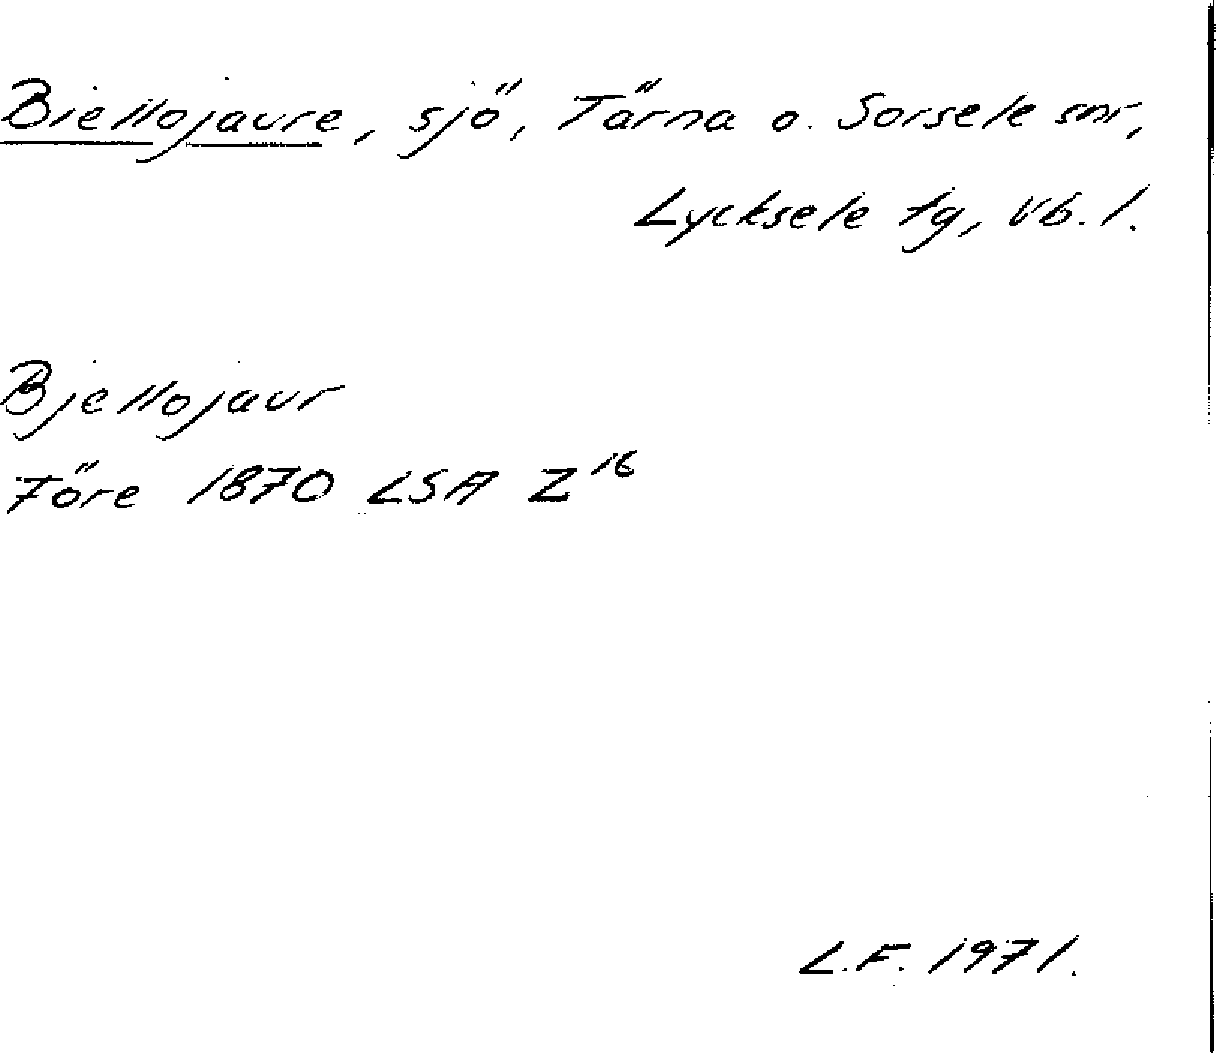 Biellojaure, sjö, Tärna o. Sorsele snr,
Lycksele tg, Vb. l.
Bjellojaur
Före 1870 LSA Z¹⁶
L.F. 1971.